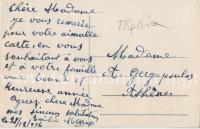 Chère Madame
je vous remercie
pour votre aimable
carte, en vous
souhaitant à vous
et à votre famille
une bonne et
heureuse année
Agréez, chère Madame
mes sincères salutations
Madame
Athènes